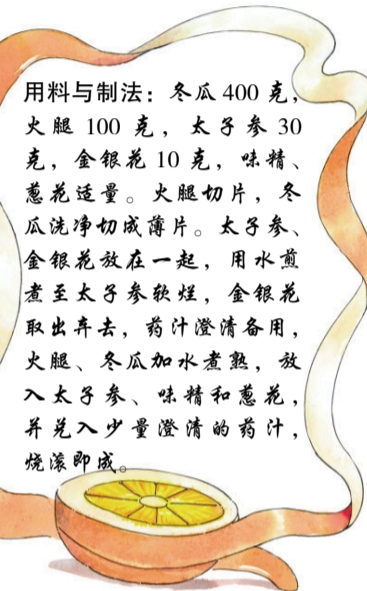 用料与制法：冬瓜 400 克，
火腿 100 克，太子参 30
克，金银花 10 克，味精、
葱花适量。火腿切片，冬
瓜洗净切成薄片。太子参、
金银花放在一起，用水煎
煮至太子参软烂，金银花
取出弃去，药汁澄清备用，
火腿、冬瓜加水煮熟，放
入太子参、味精和葱花，
并兑入少量澄清的药汁，
烧滚即成。